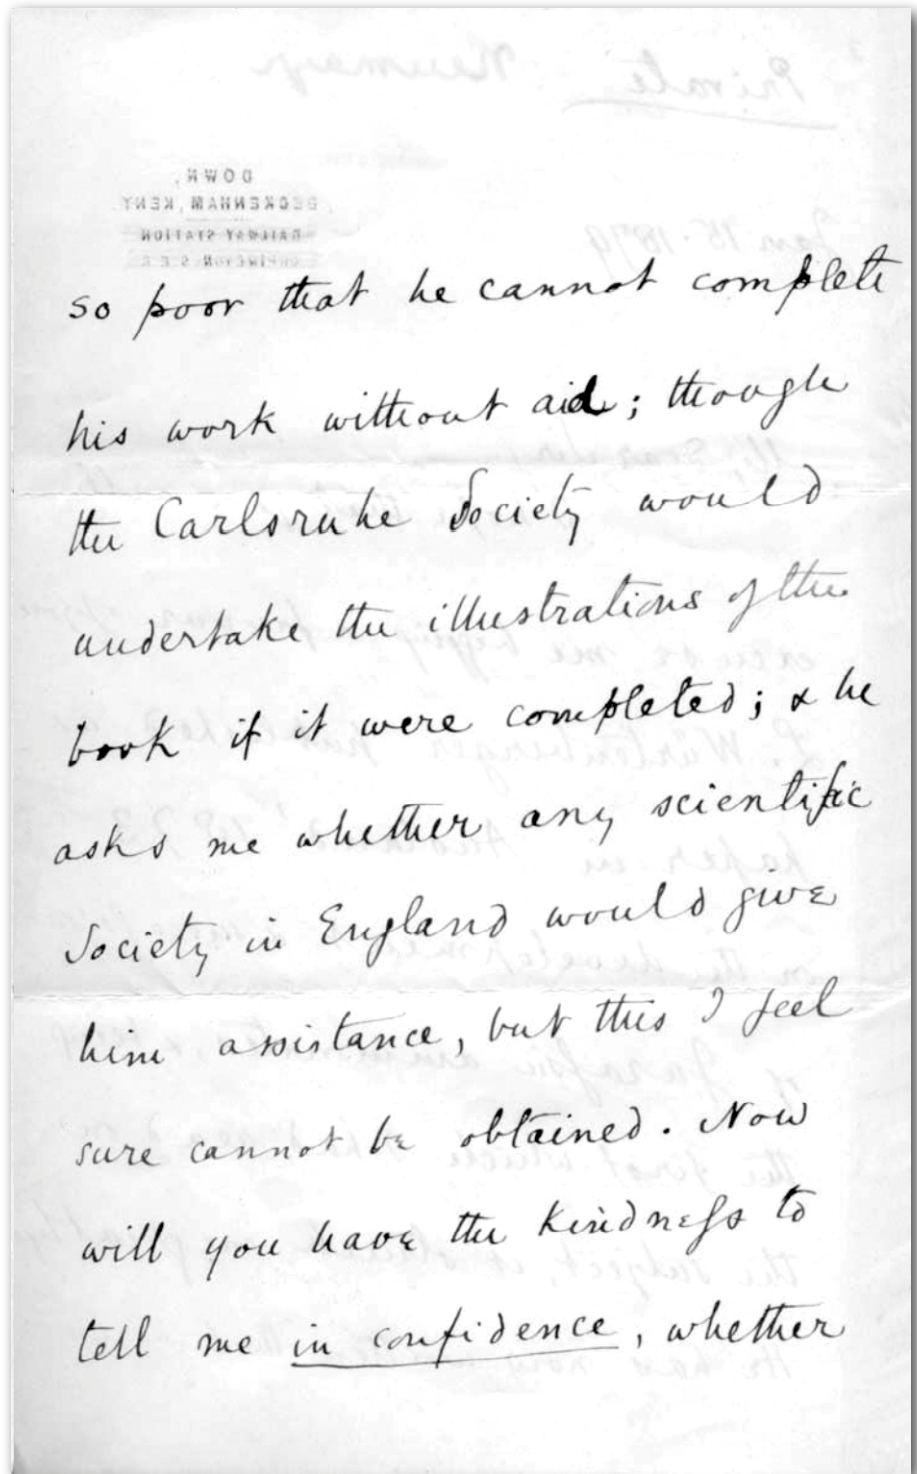 so poor that he cannot complete
his work without aid; though
the Carlsruhe Society would
undertake the illustrations of the
book if it were completed; & he
asks me whether any scientific
Society in England would give
him assistance, but this I feel
sure cannot be obtained. Now
will you have the kindness to
tell me in confidence, whether
Private
DOWN,
BECKENHAM, KENT.
RAILWAY STATION
ORPINGTON S.E.R.
Jan 15. 1879